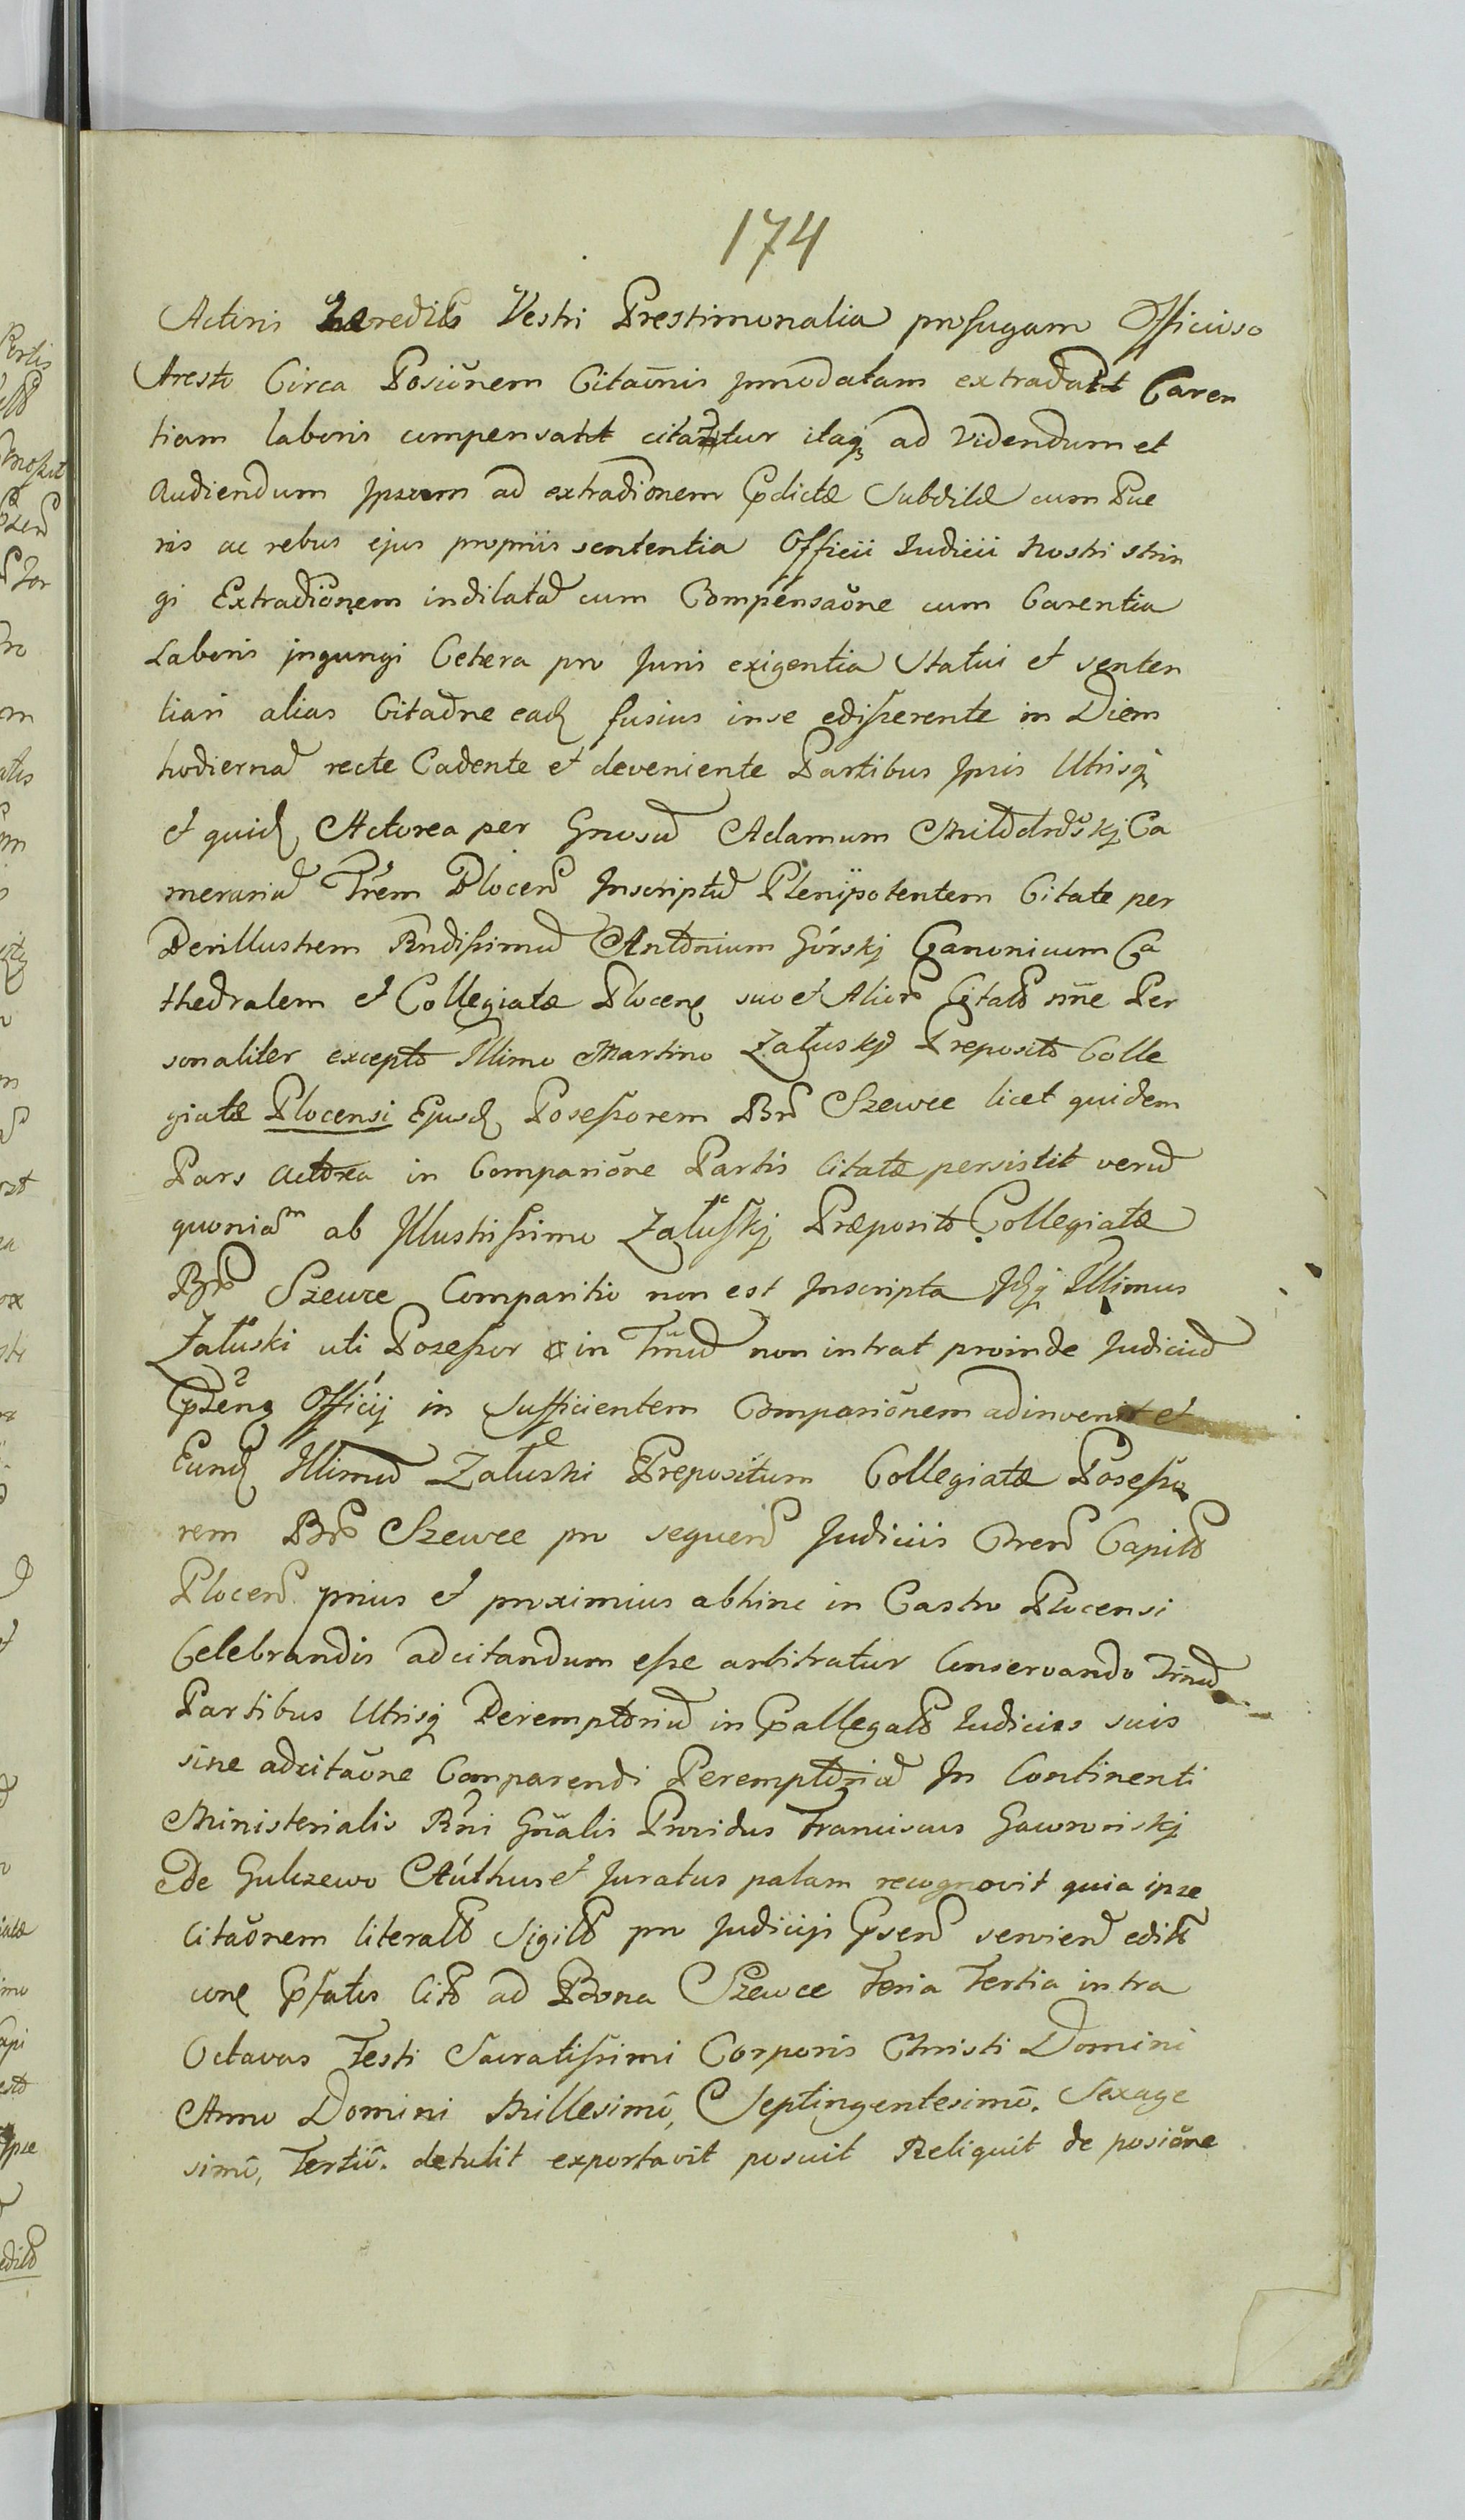 174
Actoris Haereditis Vestri Prestimonalia profugam Officioso
Aresto Circa Posiõnem Citaõnis Jnnodatam extradatt Caren
tiam laboris compensatt citantur itaq ad Videndum et
Audiendum Jpsum ad extradionem Pdictæ Subditæ cum Pue
ris ac rebus ejus propriis sententia Officii Judicii Nostri strin
gi Extradiõnem indilatã cum Compensaõne cum Carentia
Laboris jngungi Cetera pro Juris exigentia Statui et senten
tiari alias Citaõne eadq fusius in se edisserente in Diem
hodiernã recte Cadente et deveniente Partibus Jpsis Utrisq
et quidq Actorea per Gnosũ Adamum Ca
merariũ Trem Plocen Jnscriptũ Plenipotentem Citate per
Perillustrem Rndissimũ Antonium Górskj Canonicum Ca
thedralem et Collegiatæ Plocenq suo et Alior Citato nñe Per
sonaliter excepto Jllimo Martino Załuskj Preposito Colle
giatæ Plocensi Ejusdq Possessorem Bro Szewce licet quidem
Pars actorea in Compariõne Partis Citatæ persistit verũ
quoniam ab Jllustrissimo Załuskj Præposito Collegiatæ
Bro Szewce Comparitio non est Jnscripta Jdq Jllimus
Załuski uti Possessor in Tmũ non intrat proinde Judiciũ
Psens Officij in Sufficientem Compariõnem adinvenit et
Eundq Jllimũ Załuski Prepositum Collegiatæ Possesso
rem Bro Szewce pro sequen Judiciis Capit
Plocen prius et proximius abhinc in Castro Plocensi
Celebrandis adcitandum esse arbitratur Conservando Tmũ
Partibus Utrisq Peremptoriũ in Pallegato Judiciis suis
sine adcitaõne Comparendi Peremptoriũ Jn Continenti
Ministerialis Rni Gñalis Providus Franciscus Gaworiskj
De Gulczewo Authus et Juratus palam recognovit quia ipse
Citaõnem literalt Sigilt pro Judicijs Psen servien edit
Pfatis Cito ad Bona Szewce Feria Tertia intra
Octavas Festi Sacratissimi Corporis Christi Domini
Anno Domini Millesimõ, Septingentesimõ. Sexage
simõ, Tertiõ. detulit exportavit posuit Reliquit de posiõne